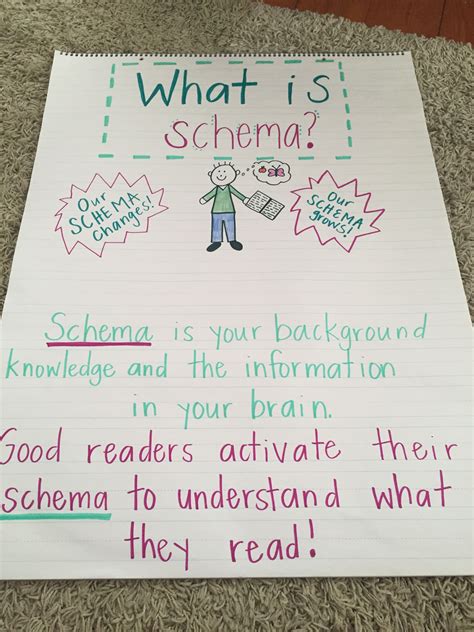 What is
schema?
Our
SCHEMA
changes!
Our
SCHEMA
grows!
Schema is your background
knowledge and the information
in your brain.
Good readers activate their
schema to understand what
they read!